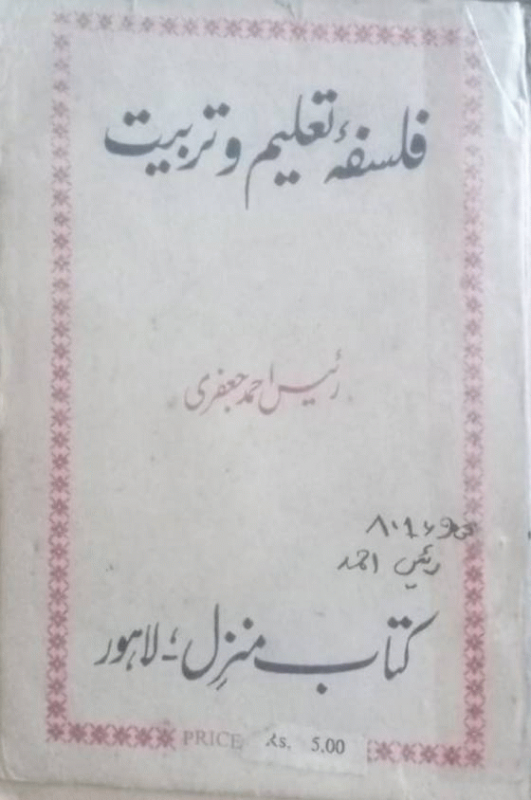 فلسفۂ تعلیم و تربیت
رئیس احمد جعفری
رئیس احمد
کتاب منزل، لاہور
PRICE Rs. 5.00